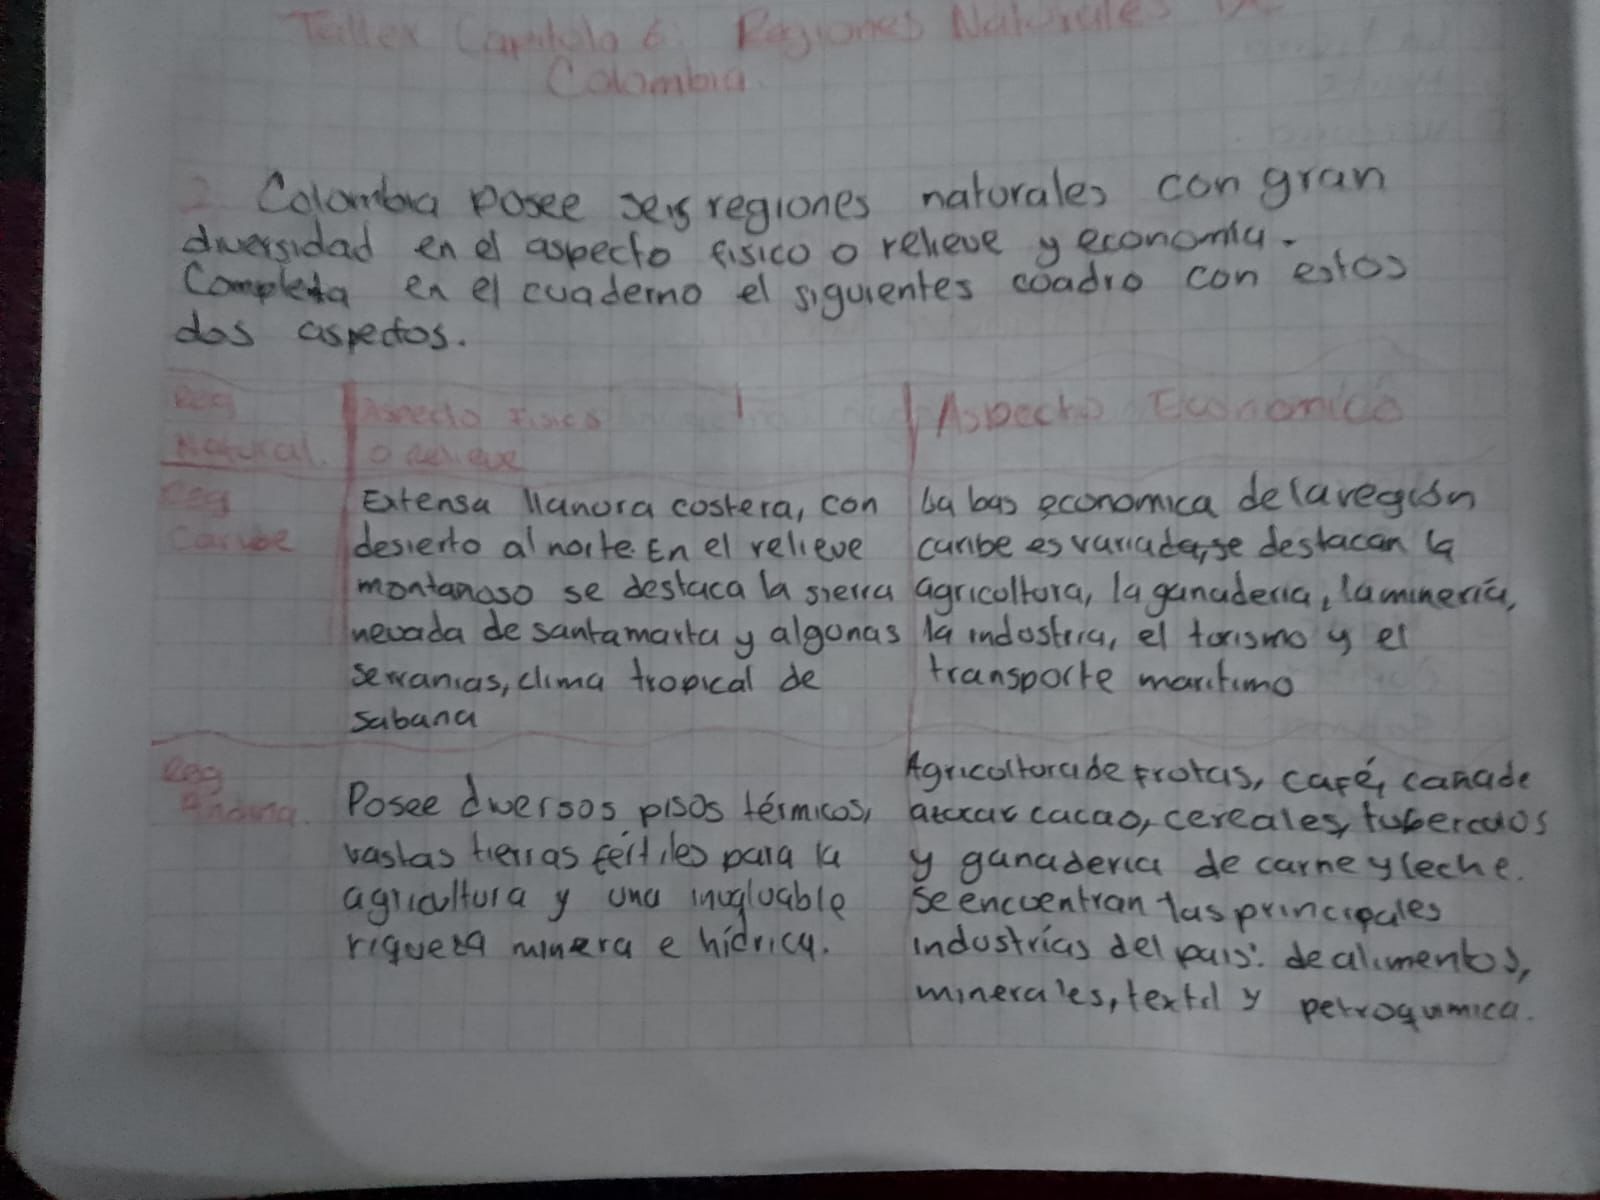 Taller Capitulo 6: Regiones Naturales De
Colombia.
2. Colombia posee seis regiones naturales con gran
diversidad en el aspecto fisico o relieve y economia.
Completa en el cuaderno el siguientes cuadro con estos
dos aspectos.
Reg Natural.
Aspecto Fisico
o relieve
Aspecto Economico
Reg
Caribe
Extensa llanura costera, con
desierto al norte. En el relieve
montañoso se destaca la sierra
nevada de santa marta y algunas
serranias, clima tropical de
sabana
La bas economica de la región
caribe es variada, se destacan la
agricultura, la ganaderia, la minería,
la industria, el turismo y el
transporte maritimo
Reg
Andina.
Posee diversos pisos térmicos,
vastas tierras fértiles para la
agricultura y una invaluable
riqueza minera e hídrica.
Agricultura de frutas, café, caña de
azucar cacao, cereales, tuberculos
y ganaderia de carne y leche.
Se encuentran las principales
industrías del pais: de alimentos,
minerales, textil y petroquimica.